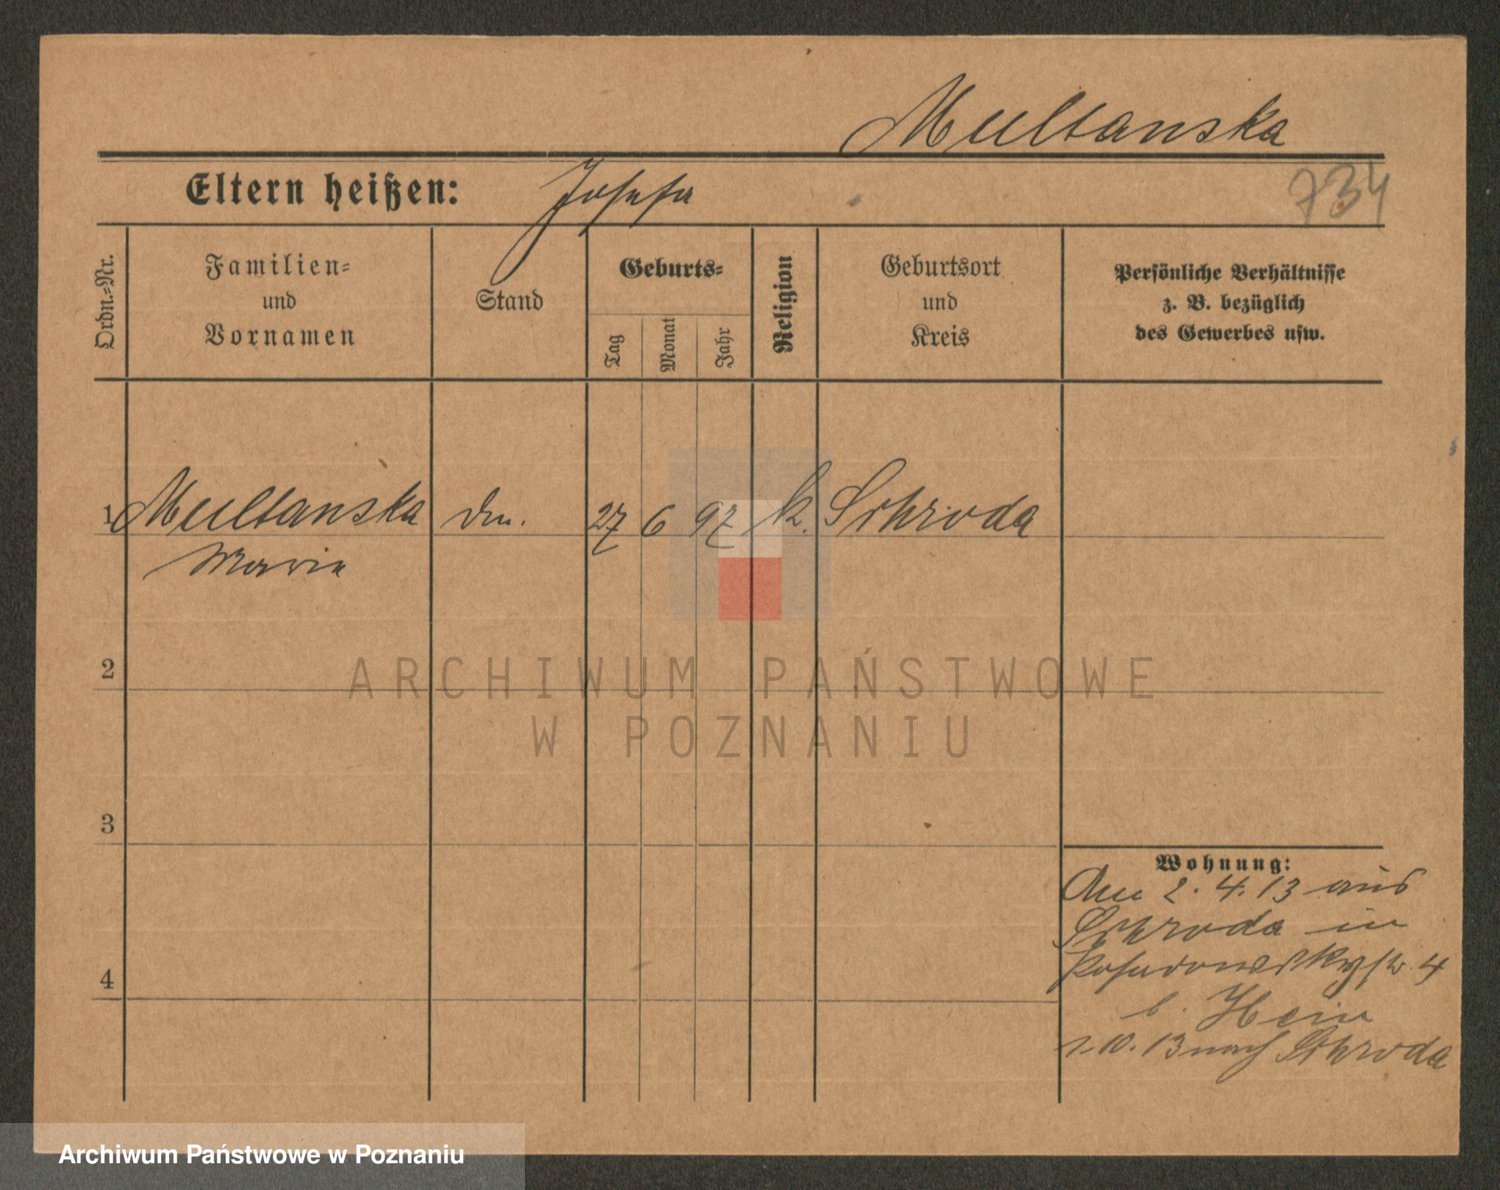 Multanska
Eltern heißen: Josefa
734
Ordn.-Nr.
Familien-
und
Vornamen
Stand
Geburts-
Tag
Monat
Jahr
Religion
Geburtsort
und
Kreis
Persönliche Verhältnisse
z. B. bezüglich
des Gewerbes usw.
1 Multanska 27 6 97 k. Schroda
Marie
2
3
4
Wohnung:
Am 2. 4. 13 aus
Schroda in
Posadowskystr. 4
b. Hein
1. 10. 13 nach Schroda
ARCHIWUM PAŃSTWOWE
W POZNANIU
Archiwum Państwowe w Poznaniu